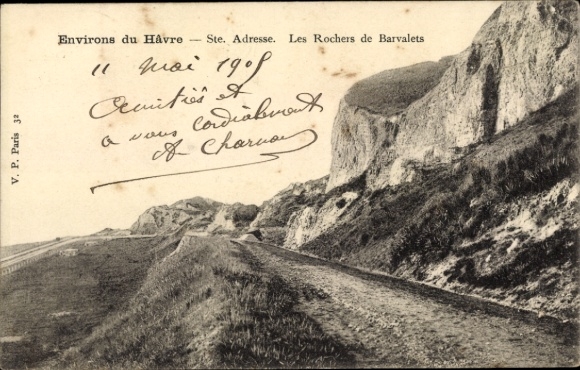 Environs du Hâvre — Ste. Adresse. Les Rochers de Barvalets
11 Mai 1905
Amitiés et
a vous cordialement
A Charnon
V. P. Paris 32